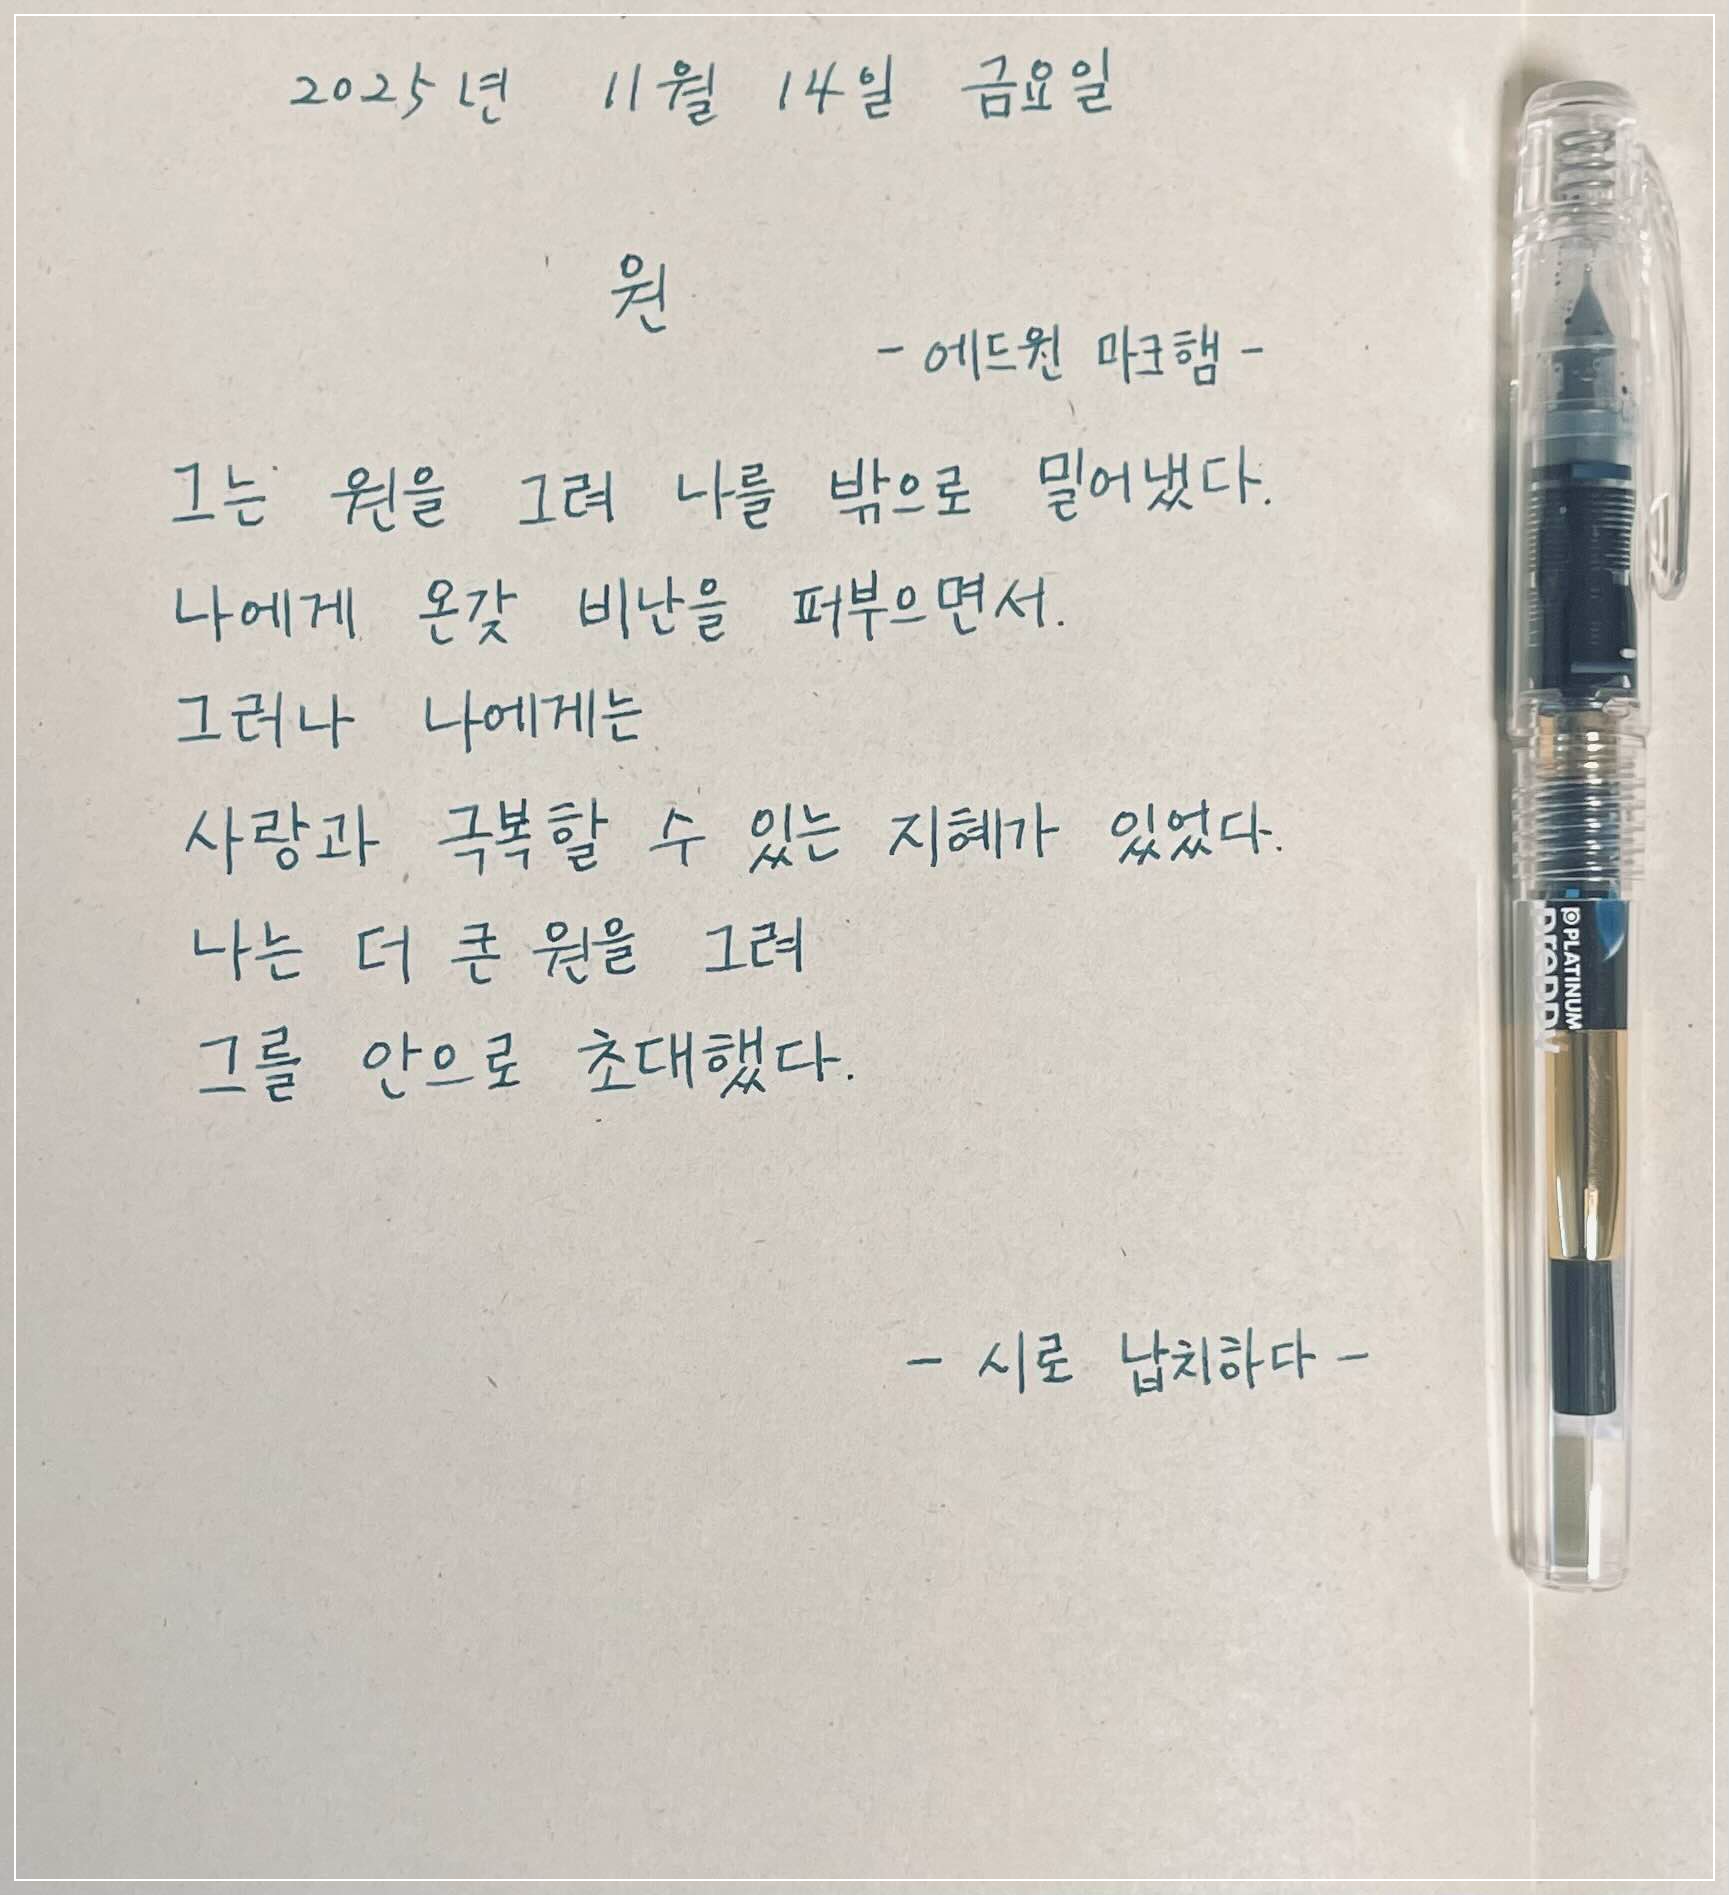 2025년 11월 14일 금요일
원
- 에드윈 마크햄 -
그는 원을 그려 나를 밖으로 밀어냈다.
나에게 온갖 비난을 퍼부으면서.
그러나 나에게는
사랑과 극복할 수 있는 지혜가 있었다.
나는 더 큰 원을 그려
그를 안으로 초대했다.
- 시로 납치하다 -
PLATINUM